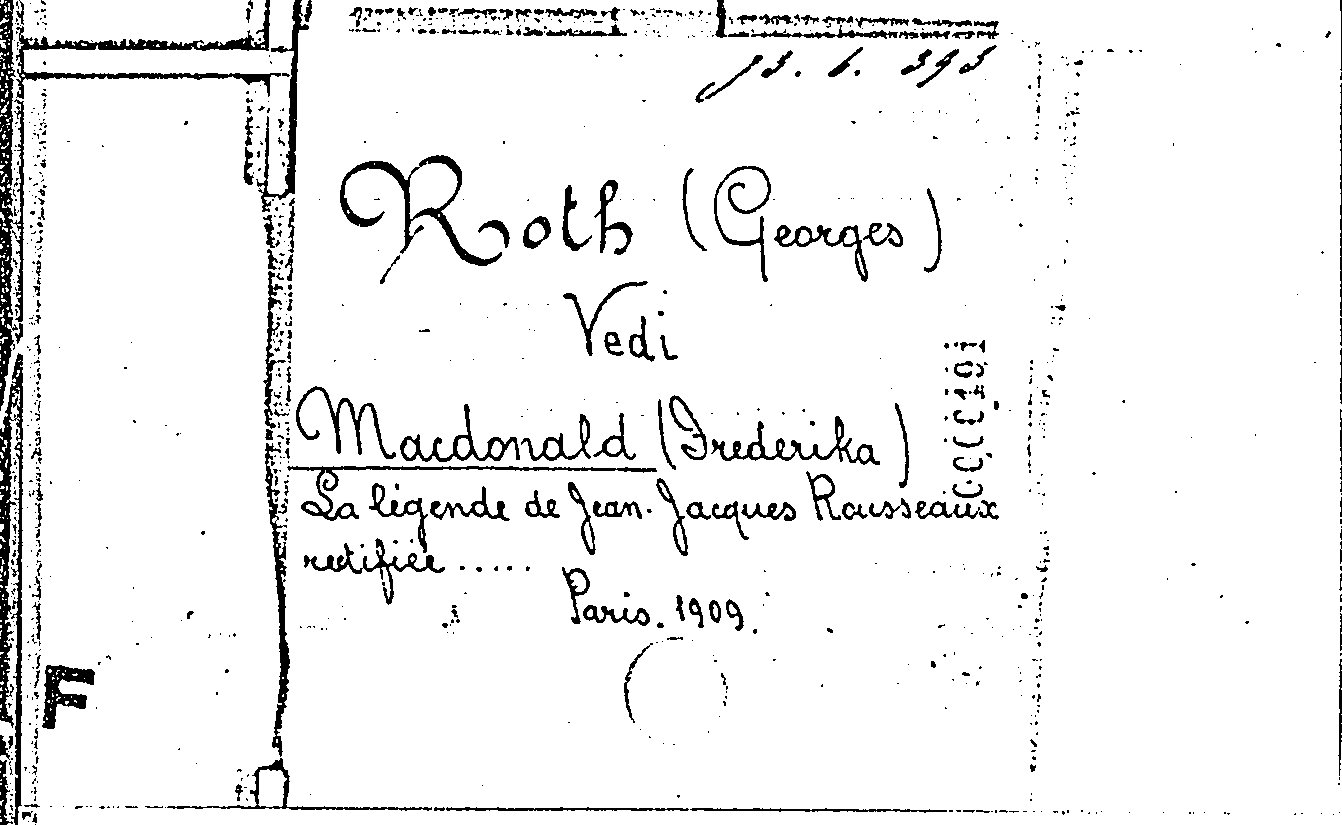 13. 6. 393
Roth (Georges)
Vedi
Macdonald (Frederika)
La légende de Jean-Jacques Rousseaux
rectifiée .....
Paris. 1909.
F